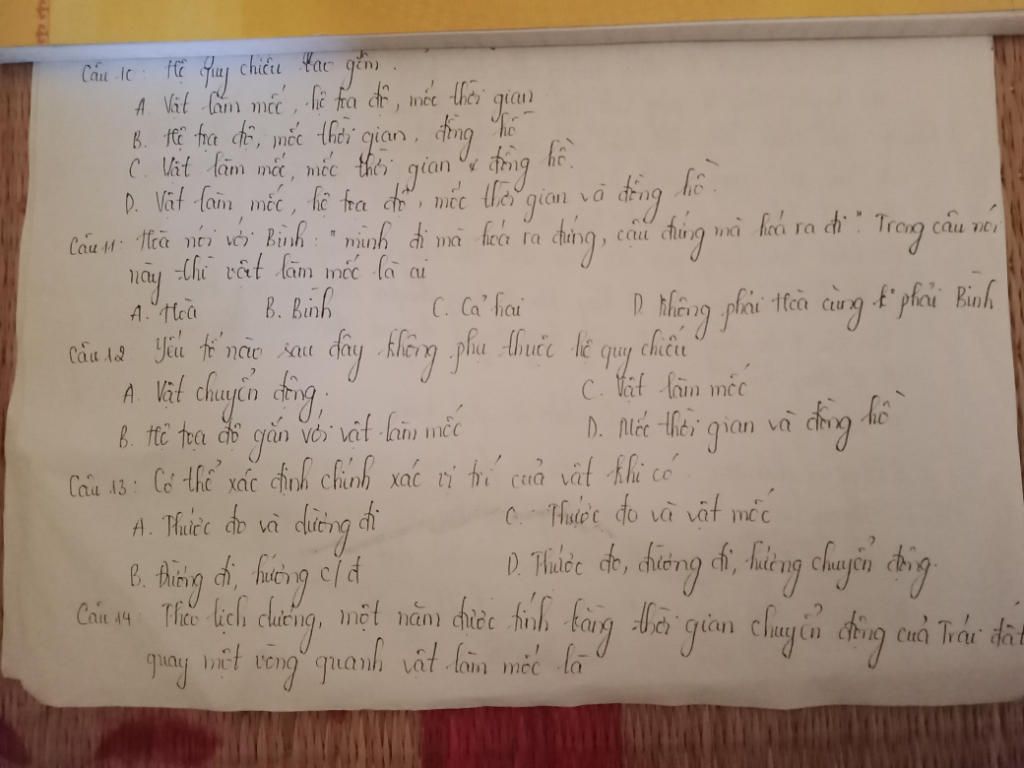 Câu 10: Hệ quy chiếu bao gồm.
A. Vật làm mốc, hệ tọa độ, mốc thời gian
B. Hệ tọa độ, mốc thời gian, đồng hồ
C. Vật làm mốc, mốc thời gian & đồng hồ.
D. Vật làm mốc, hệ tọa độ, mốc thời gian và đồng hồ.
Câu 11: Hoà nói với Bình: "mình đi mà hoá ra đứng, cậu đứng mà hoá ra đi". Trong câu nói
này thì vật làm mốc là ai
A. Hoà B. Bình C. Cả hai D. Không phải Hoà cũng k° phải Bình
Câu 12 Yếu tố nào sau đây không phụ thuộc hệ quy chiếu
A. Vật chuyển động. C. Vật làm mốc
B. Hệ tọa độ gắn với vật làm mốc D. Mốc thời gian và đồng hồ
Câu 13: Có thể xác định chính xác vị trí của vật khi có
A. Thước đo và đường đi C. Thước đo và vật mốc
B. Đường đi, hướng c/đ D. Thước đo, đường đi, hướng chuyển động.
Câu 14: Theo lịch dương, một năm được tính bằng thời gian chuyển động của Trái đất
quay một vòng quanh vật làm mốc là